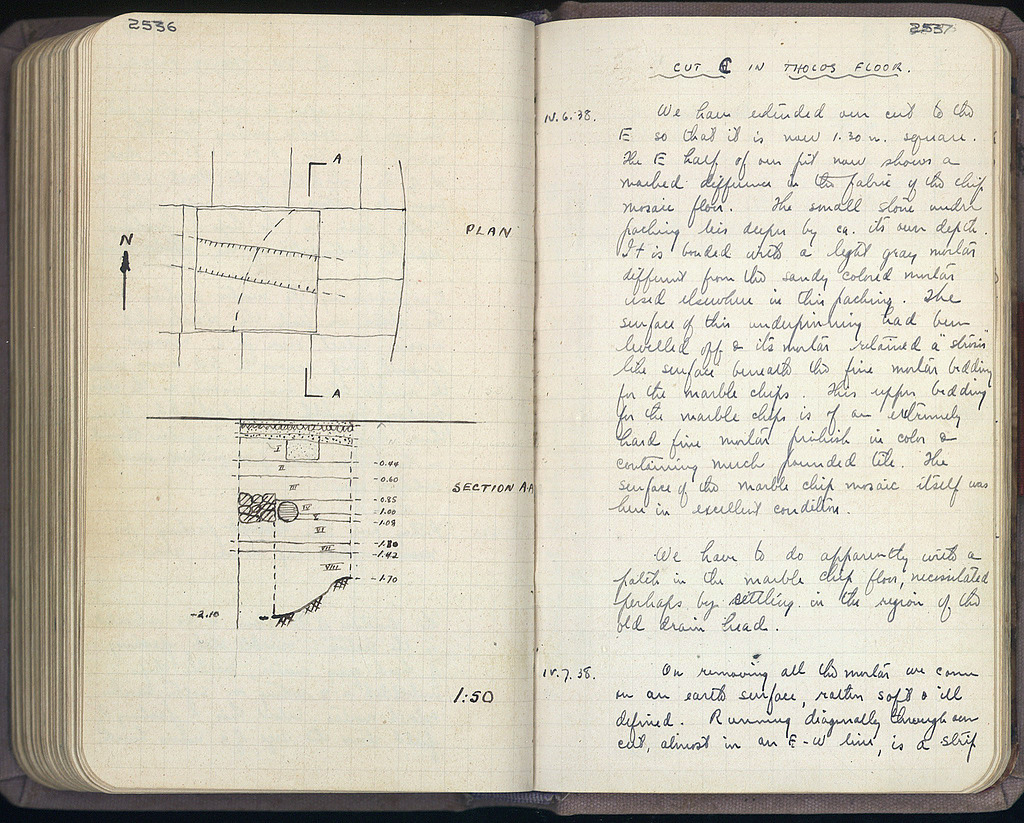 2536
A
PLAN
N
A
I
II
-0.44
-0.60
III
SECTION A-A
-0.85
IV
-1.00
V
-1.08
VI
-1.30
VII
-1.42
VIII
-1.70
-2.10
1:50
2537
CUT C IN THOLOS FLOOR.
IV.6.38. We have extended our cut to the
E so that it is now 1.30 m. square.
The E half of our pit now shows a
marked difference in the fabric of the chip
mosaic floor. The small stone under
packing lies deeper by ca. its own depth.
It is bonded with a light gray mortar
different from the sandy colored mortar
used elsewhere in this packing. The
surface of this underpinning had been
levelled off & its mortar retained a "strosis"
like surface beneath the fine mortar bedding
for the marble chips. This upper bedding
for the marble chips is of an extremely
hard fine mortar pinkish in color &
containing much pounded tile. The
surface of the marble chip mosaic itself was
here in excellent condition.
We have to do apparently with a
patch in the marble chip floor, necessitated
perhaps by settling in the region of the
old drain head.
IV.7.38. On removing all the mortar we come
on an earth surface, rather soft & ill
defined. Running diagonally through our
cut, almost in an E-W line, is a strip